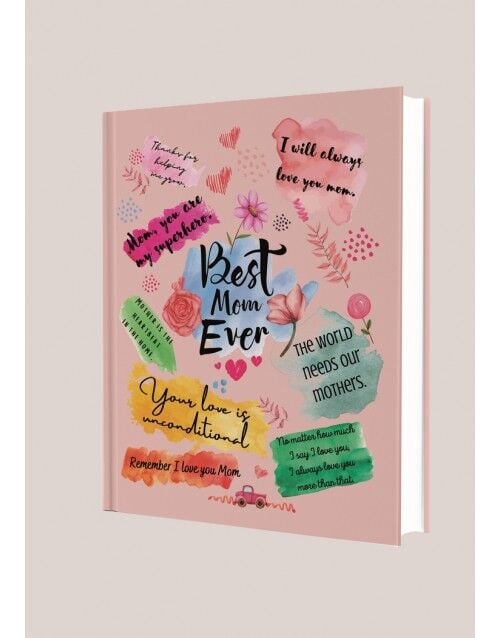 Thanks for
helping
me grow.
I will always
love you mom.
Mom, you are
my superhero.
Best
Mom
Ever
MOTHER IS THE
HEARTBEAT
IN THE HOME.
THE WORLD
NEEDS OUR
MOTHERS.
Your love is
unconditional
No matter how much
I say I love you,
I always love you
more than that.
Remember I love you Mom